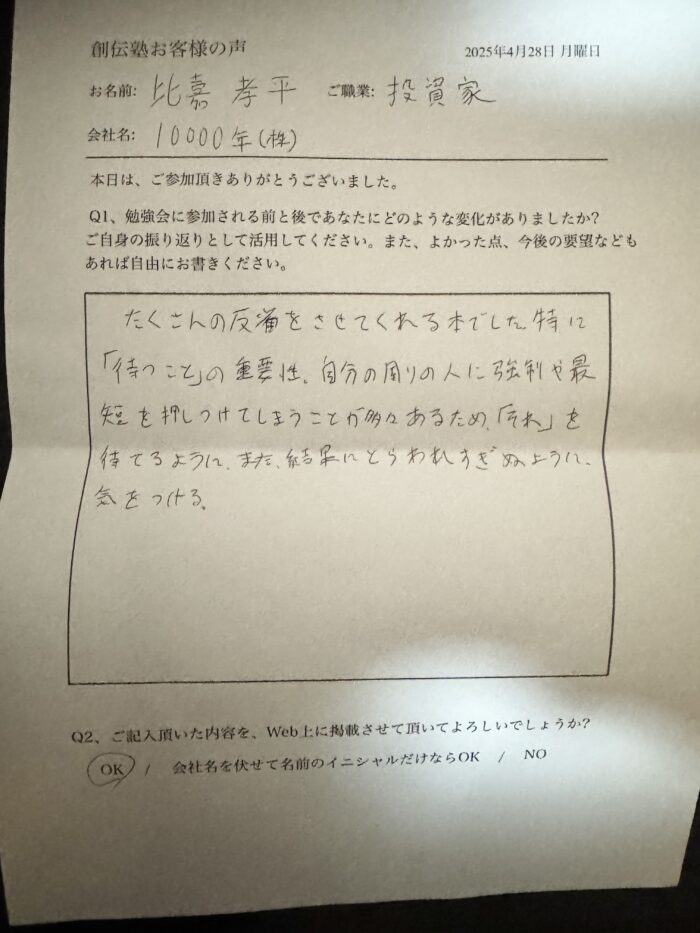 創伝塾お客様の声 2025年4月28日 月曜日
お名前: 比嘉 孝平 ご職業: 投資家
会社名: 10000年(株)
本日は、ご参加頂きありがとうございました。
Q1、勉強会に参加される前と後であなたにどのような変化がありましたか?
ご自身の振り返りとして活用してください。また、よかった点、今後の要望なども
あれば自由にお書きください。
たくさんの反省をさせてくれる本でした。特に
「待つこと」の重要性。自分の周りの人に強制や最
短を押しつけてしまうことが多々あるため、「それ」を
待てるように、また、結果にとらわれすぎぬように、
気をつける。
Q2、ご記入頂いた内容を、Web上に掲載させて頂いてよろしいでしょうか?
OK / 会社名を伏せて名前のイニシャルだけならOK / NO